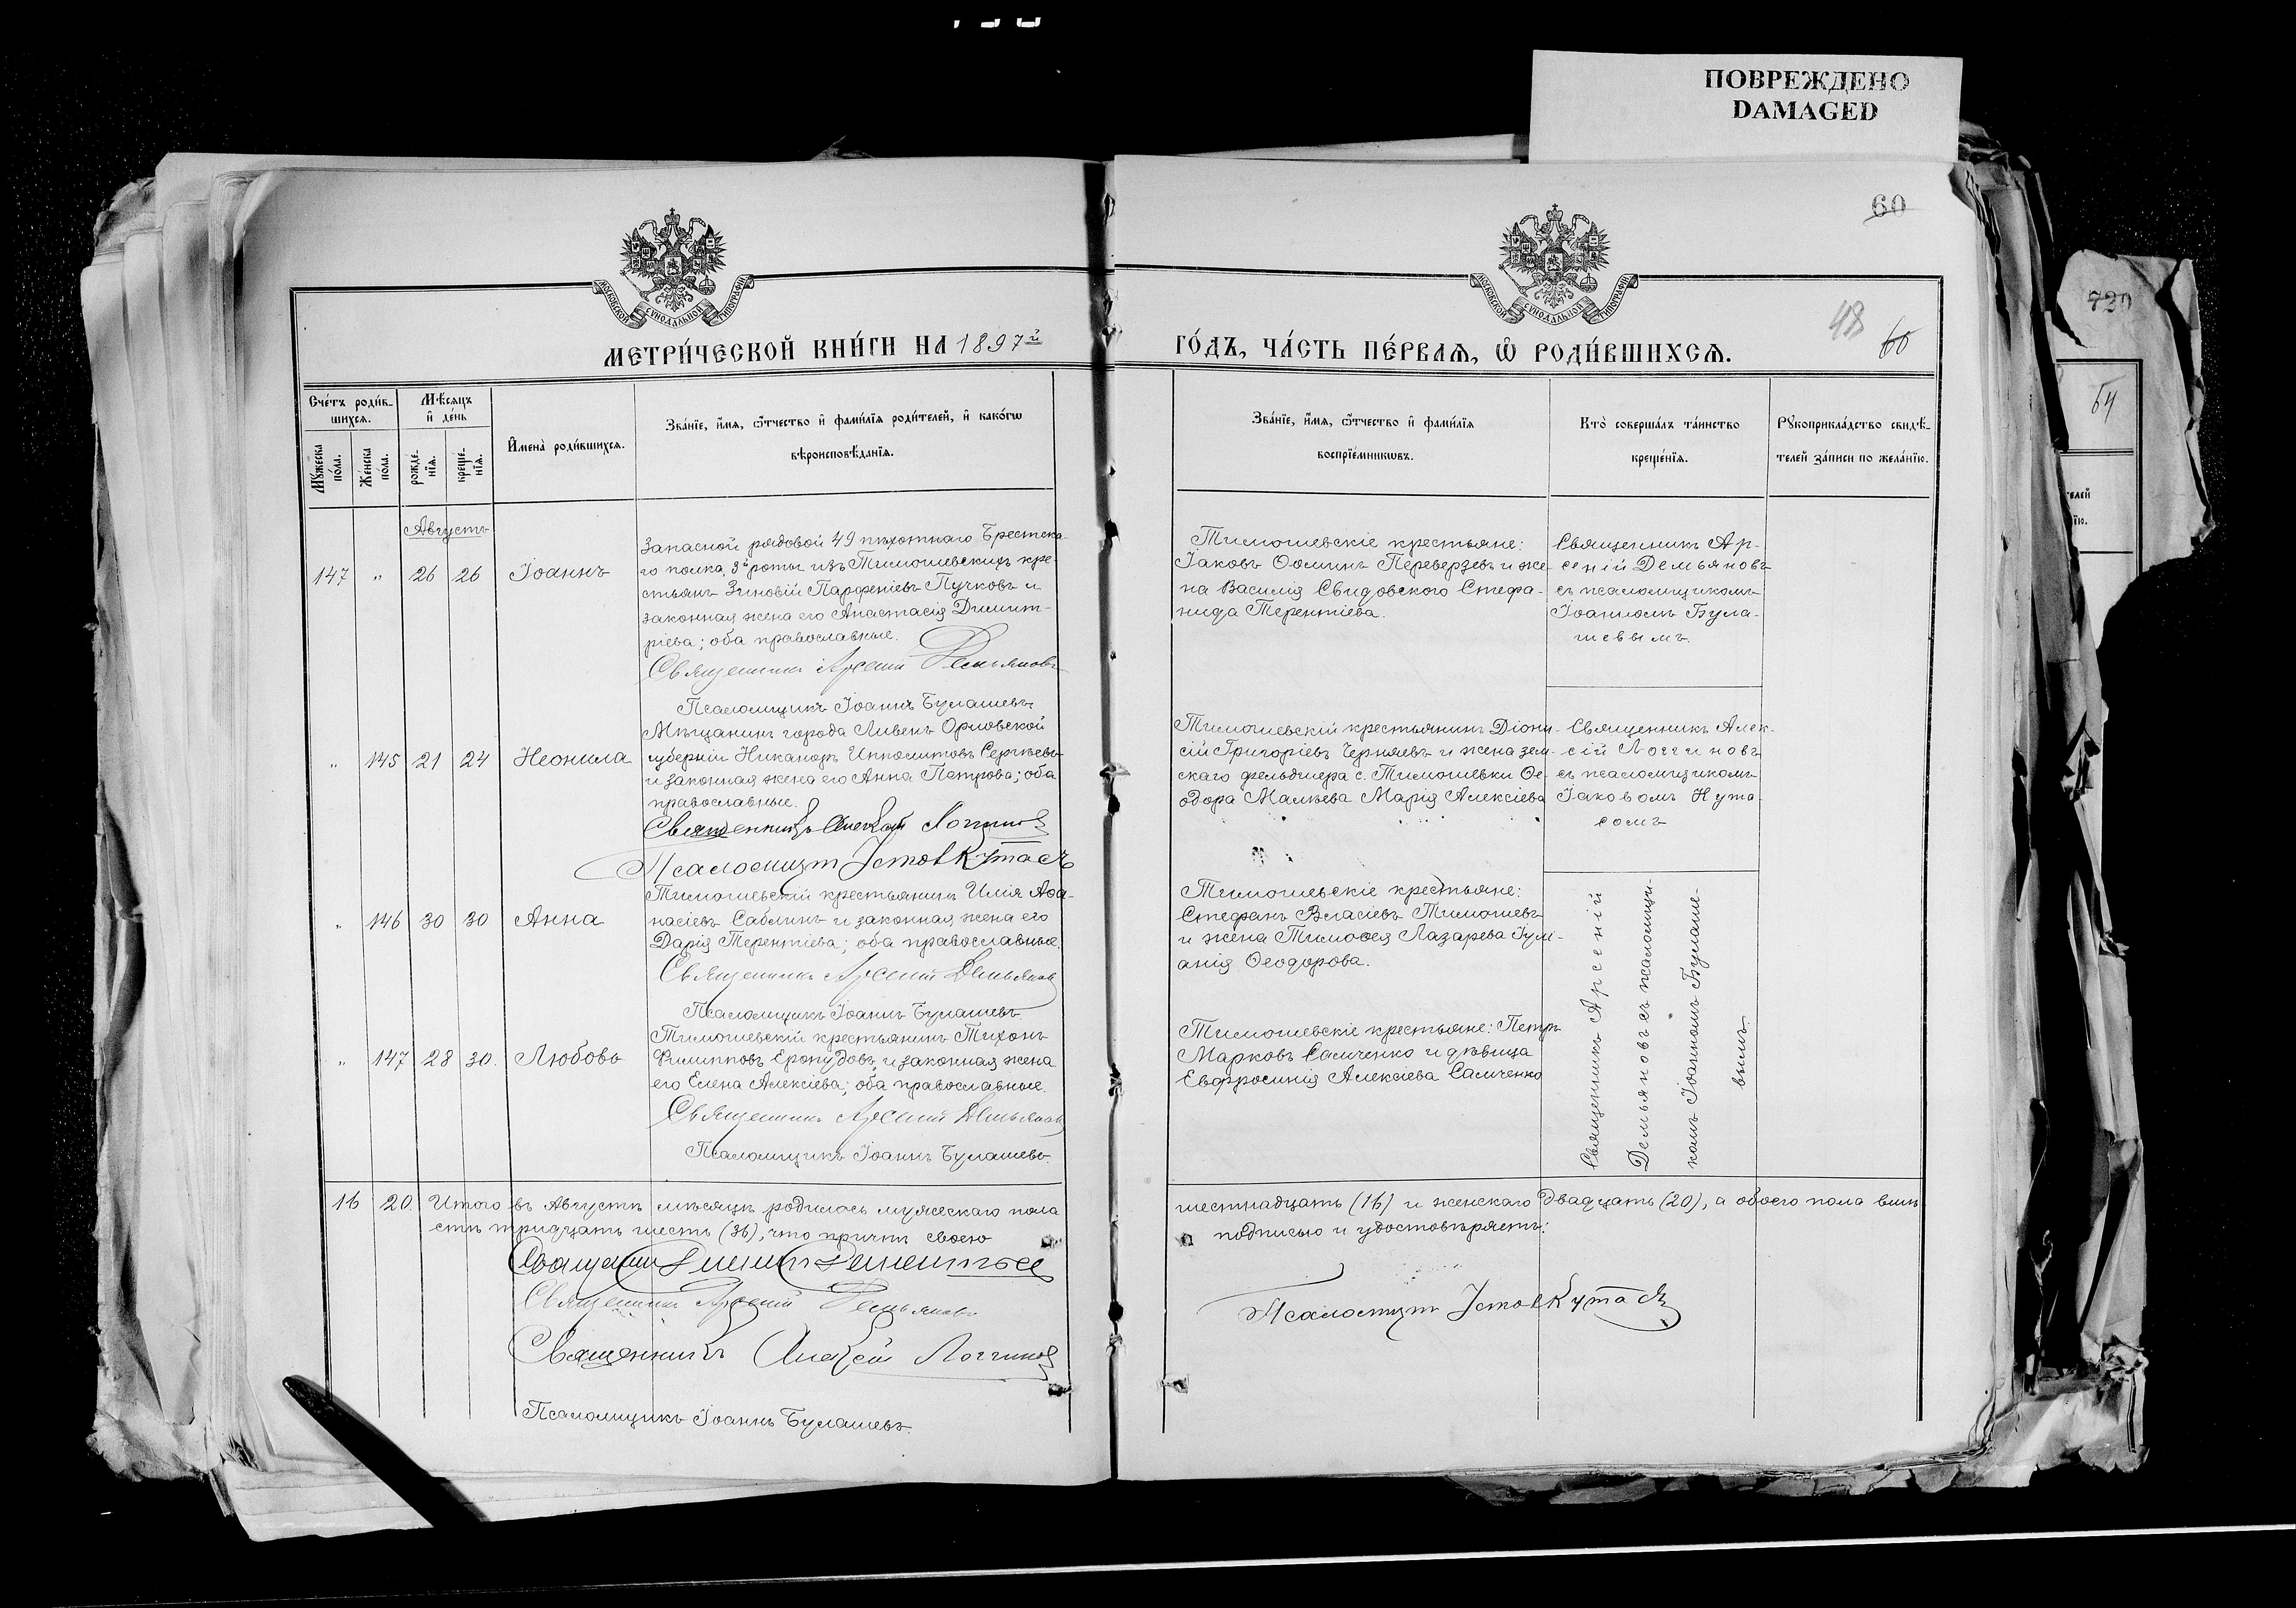 ПОВРЕЖДЕНО
DAMAGED
60
720
МОСКОВСКОЙ СѴНОДАЛЬНОЙ ТИПОГРАФІИ
МОСКОВСКОЙ СѴНОДАЛЬНОЙ ТИПОГРАФІИ
МЕТРИ́ЧЕСКОЙ КНИ́ГИ НА 1897й
ГО́ДЪ, ЧА́СТЬ ПЕ́РВАѦ, Ѽ РОДИ́ВШИХСѦ.
48
60
64
Сче́тъ роди́в-
шихсѧ.
Мѣ́сѧцъ
и҆ де́нь
Мꙋ́жеска
по́ла.
Же́нска
по́ла.
рожде-
нїѧ.
креще-
нїѧ.
И҆мена̀ роди́вшихсѧ.
Зва́нїе, и҆́мѧ, ѻ҆́тчество и҆ фами́лїѧ роди́телей, и҆ како́гѡ
вѣроисповѣ́данїѧ.
Зва́нїе, и҆́мѧ, ѻ҆́тчество и҆ фами́лїѧ
воспрїе́мникѡвъ.
Кто̀ соверша́лъ та́инство
креще́нїѧ.
Рꙋкоприкла́дство свидѣ́-
телей за́писи по жела́нїю.
телей
їю.
Августъ
147 " 26 26 Іоаннъ
Запасной рядовой 49 пѣхотнаго Брестска-
го полка, 3й роты изъ Тимошевскихъ кре-
стьянъ Зиновій Парѳеніевъ Пучковъ и
законная жена его Анастасія Димит-
ріева; оба православные.
Священникъ Арсеній Демьяновъ
Псаломщикъ Іоаннъ Булашевъ
Тимошевскіе крестьяне:
Іаковъ Ѳоминъ Переверзевъ и же-
на Василія Свидовского Стефа-
нида Терентіева.
Священникъ Ар-
сеній Демьяновъ
съ псаломщикомъ
Іоанномъ Була-
шевымъ.
" 145 21 24 Неонила
Мѣщанинъ города Ливенъ Орловской
губерніи Никаноръ Ипполитовъ Сергѣевъ
и законная жена его Анна Петрова; оба
православные.
Священникъ Алексій Логгиновъ
Псаломщикъ Кутасъ
Тимошевскій крестьянинъ Діони-
сій Григоріевъ Черняевъ и жена зем-
скаго фельдшера с. Тимошевки Ѳе-
одора Малѣева Марія Алексіева
Священникъ Алек-
сій Логгиновъ
съ псаломщикомъ
Іаковомъ Кута-
сомъ
" 146 30 30 Анна
Тимошевскій крестьянинъ Илія Аѳа-
насіевъ Саблинъ и законная жена его
Дарія Терентіева; оба православные.
Священникъ Арсеній Демьяновъ
Псаломщикъ Іоаннъ Булашевъ.
Тимошевскіе крестьяне:
Стефанъ Власіевъ Тимошевъ
и жена Тимоѳея Лазарева Іулі-
анія Ѳеодорова.
" 147 28 30. Любовь
Тимошевскій крестьянинъ Тихонъ
Филипповъ и законная жена
его Елена Алексіева; оба православные.
Священникъ Арсеній Демьяновъ
Псаломщикъ Іоаннъ Булашевъ.
Тимошевскіе крестьяне: Петръ
Марковъ Самченко и дѣвица
Евфросинія Алексіева Самченко
Священникъ Арсеній
Демьяновъ съ псаломщи-
комъ Іоанномъ Булаше-
вымъ
16 20. Итого въ Августѣ мѣсяцѣ родилось мужескаго пола
шестнадцать (16) и женскаго двадцать (20), а обоего пола вмѣ-
стѣ тридцать шесть (36), что причтъ своею
подписью и удостовѣряетъ:
Священникъ
Священникъ Арсеній Демьяновъ
Священникъ Алексѣй Логгиновъ
Псаломщикъ Іоаннъ Булашевъ.
Псаломщикъ Кутасъ